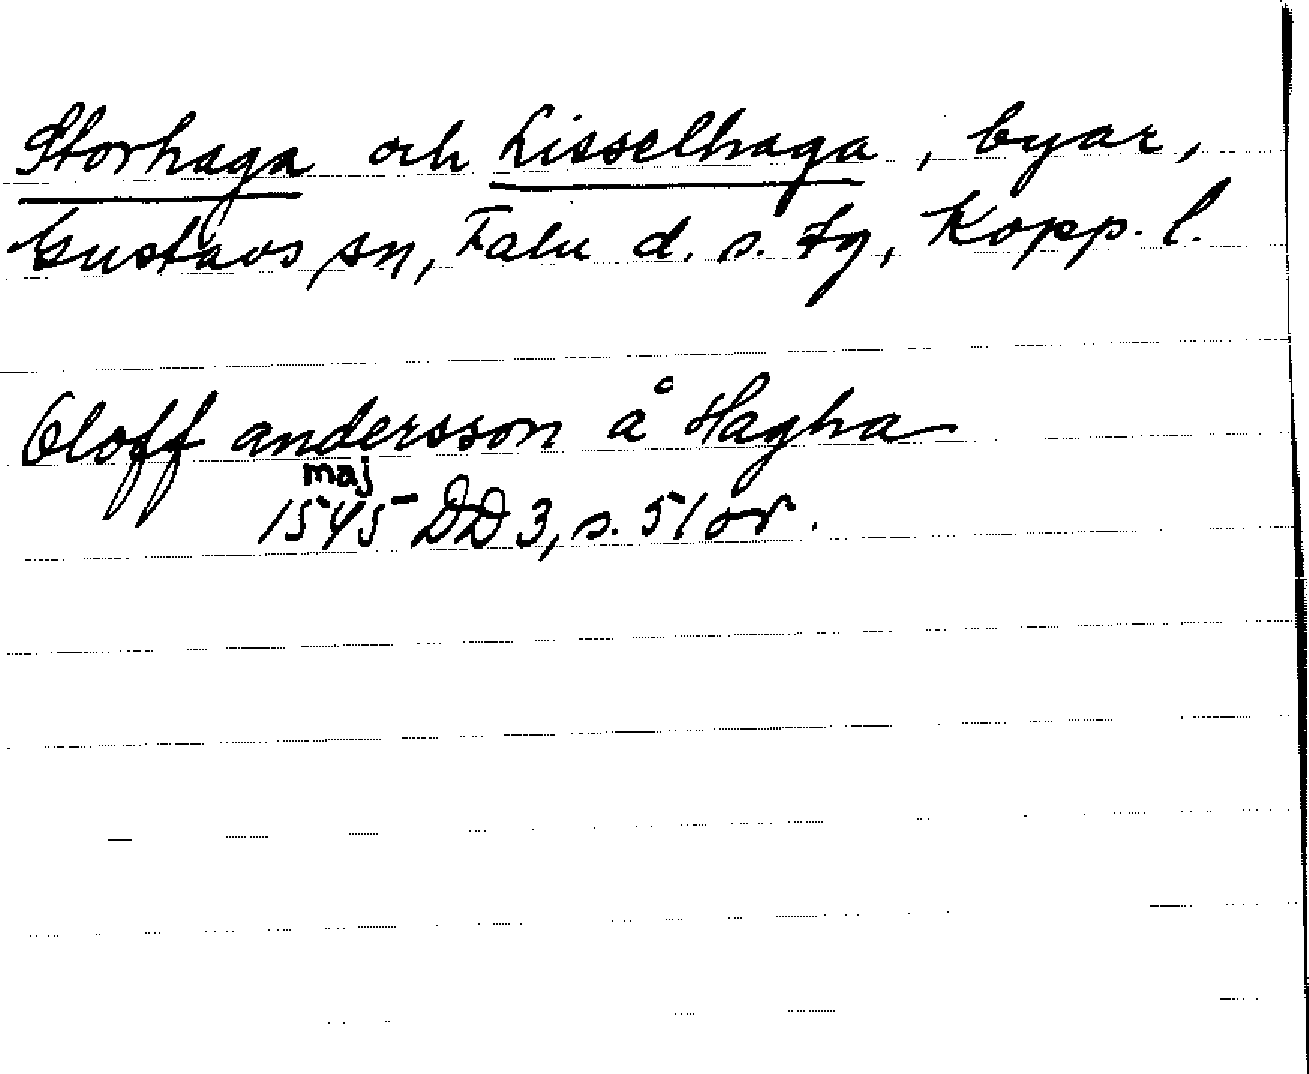 Storhaga och Lisselhaga, byar,
Gustavs sn, Falu d. s. tg, Kopp. l.
Oloff andersson å Hagha
maj
1545 DD 3, s. 51 or.